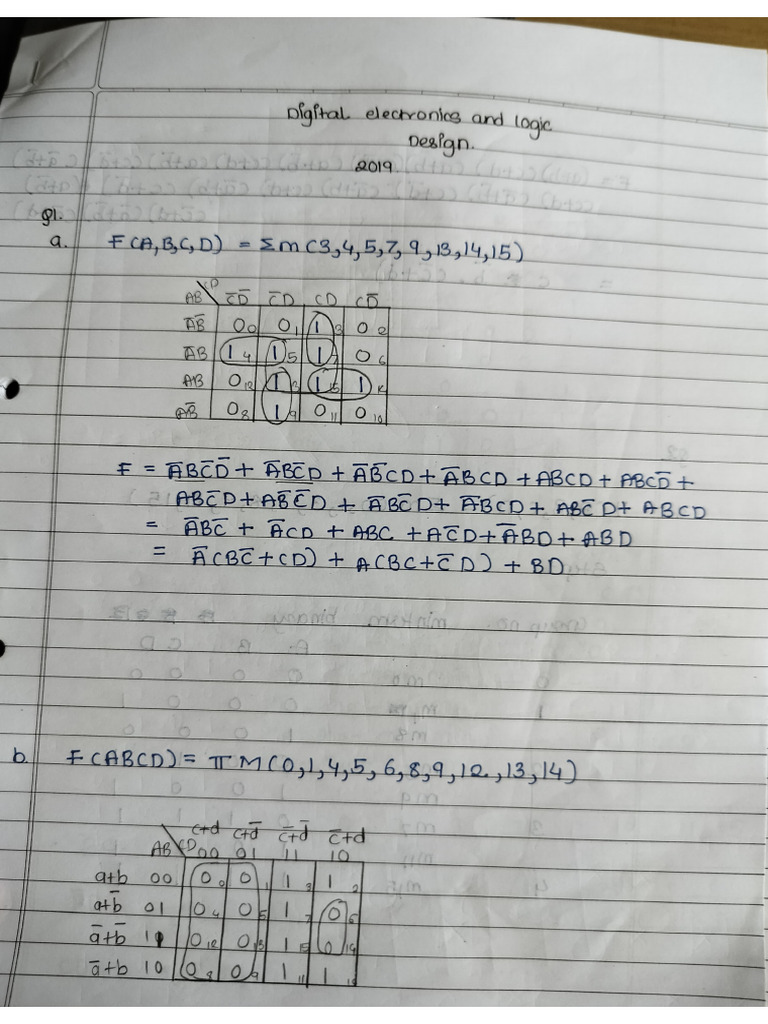 Digital electronics and logic
Design.
2019.
Q1.
a. F(A,B,C,D) = Σm(3,4,5,7,9,13,14,15)
AB\CD C̅D̅ C̅D CD CD̅
A̅B̅ 0₀ 0₁ 1₃ 0₂
A̅B 1₄ 1₅ 1₇ 0₆
AB 0₁₂ 1₁₃ 1₁₅ 1₁₄
AB̅ 0₈ 1₉ 0₁₁ 0₁₀
F = A̅BC̅D̅ + A̅BC̅D + A̅B̅CD + A̅BCD + ABCD + ABCD̅ +
ABC̅D + AB̅C̅D + A̅BC̅D + A̅BCD + ABC̅D + ABCD
= A̅BC̅ + A̅CD + ABC + AC̅D + A̅BD + ABD
= A̅(BC̅+CD) + A(BC+C̅D) + BD
b. F(ABCD) = πM(0,1,4,5,6,8,9,12,13,14)
c+d c+d̅ c̅+d̅ c̅+d
AB\CD 00 01 11 10
a+b 00 0₀ 0₁ 1₃ 1₂
a+b̅ 01 0₄ 0₅ 1₇ 0₆
a̅+b̅ 11 0₁₂ 0₁₃ 1₁₅ 0₁₄
a̅+b 10 0₈ 0₉ 1₁₁ 1₁₀